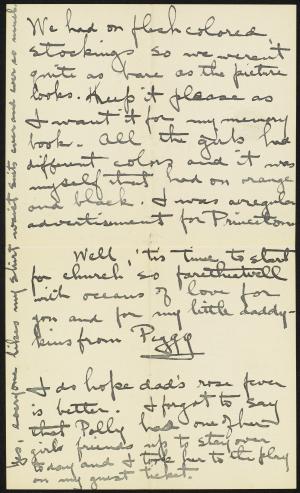 We had on flesh colored
stockings so we weren't
quite as bare as the picture
looks. Keep it please as
I want it for my memory
book. All the girls had
different colors and it was
myself that had on orange
and black. I was a regular
advertisement for Princeton
Well, 'tis time to start
for church so farethewell
with oceans of love for
you and for my little daddy-
kins from Peggy
I do hope dad's rose fever
is better. I forgot to say
that Polly had one of her
girls friends up to stay over
today and I took her to the play
on my guest ticket.
Yes, everyone likes my shirt waist suits ever and ever so much.